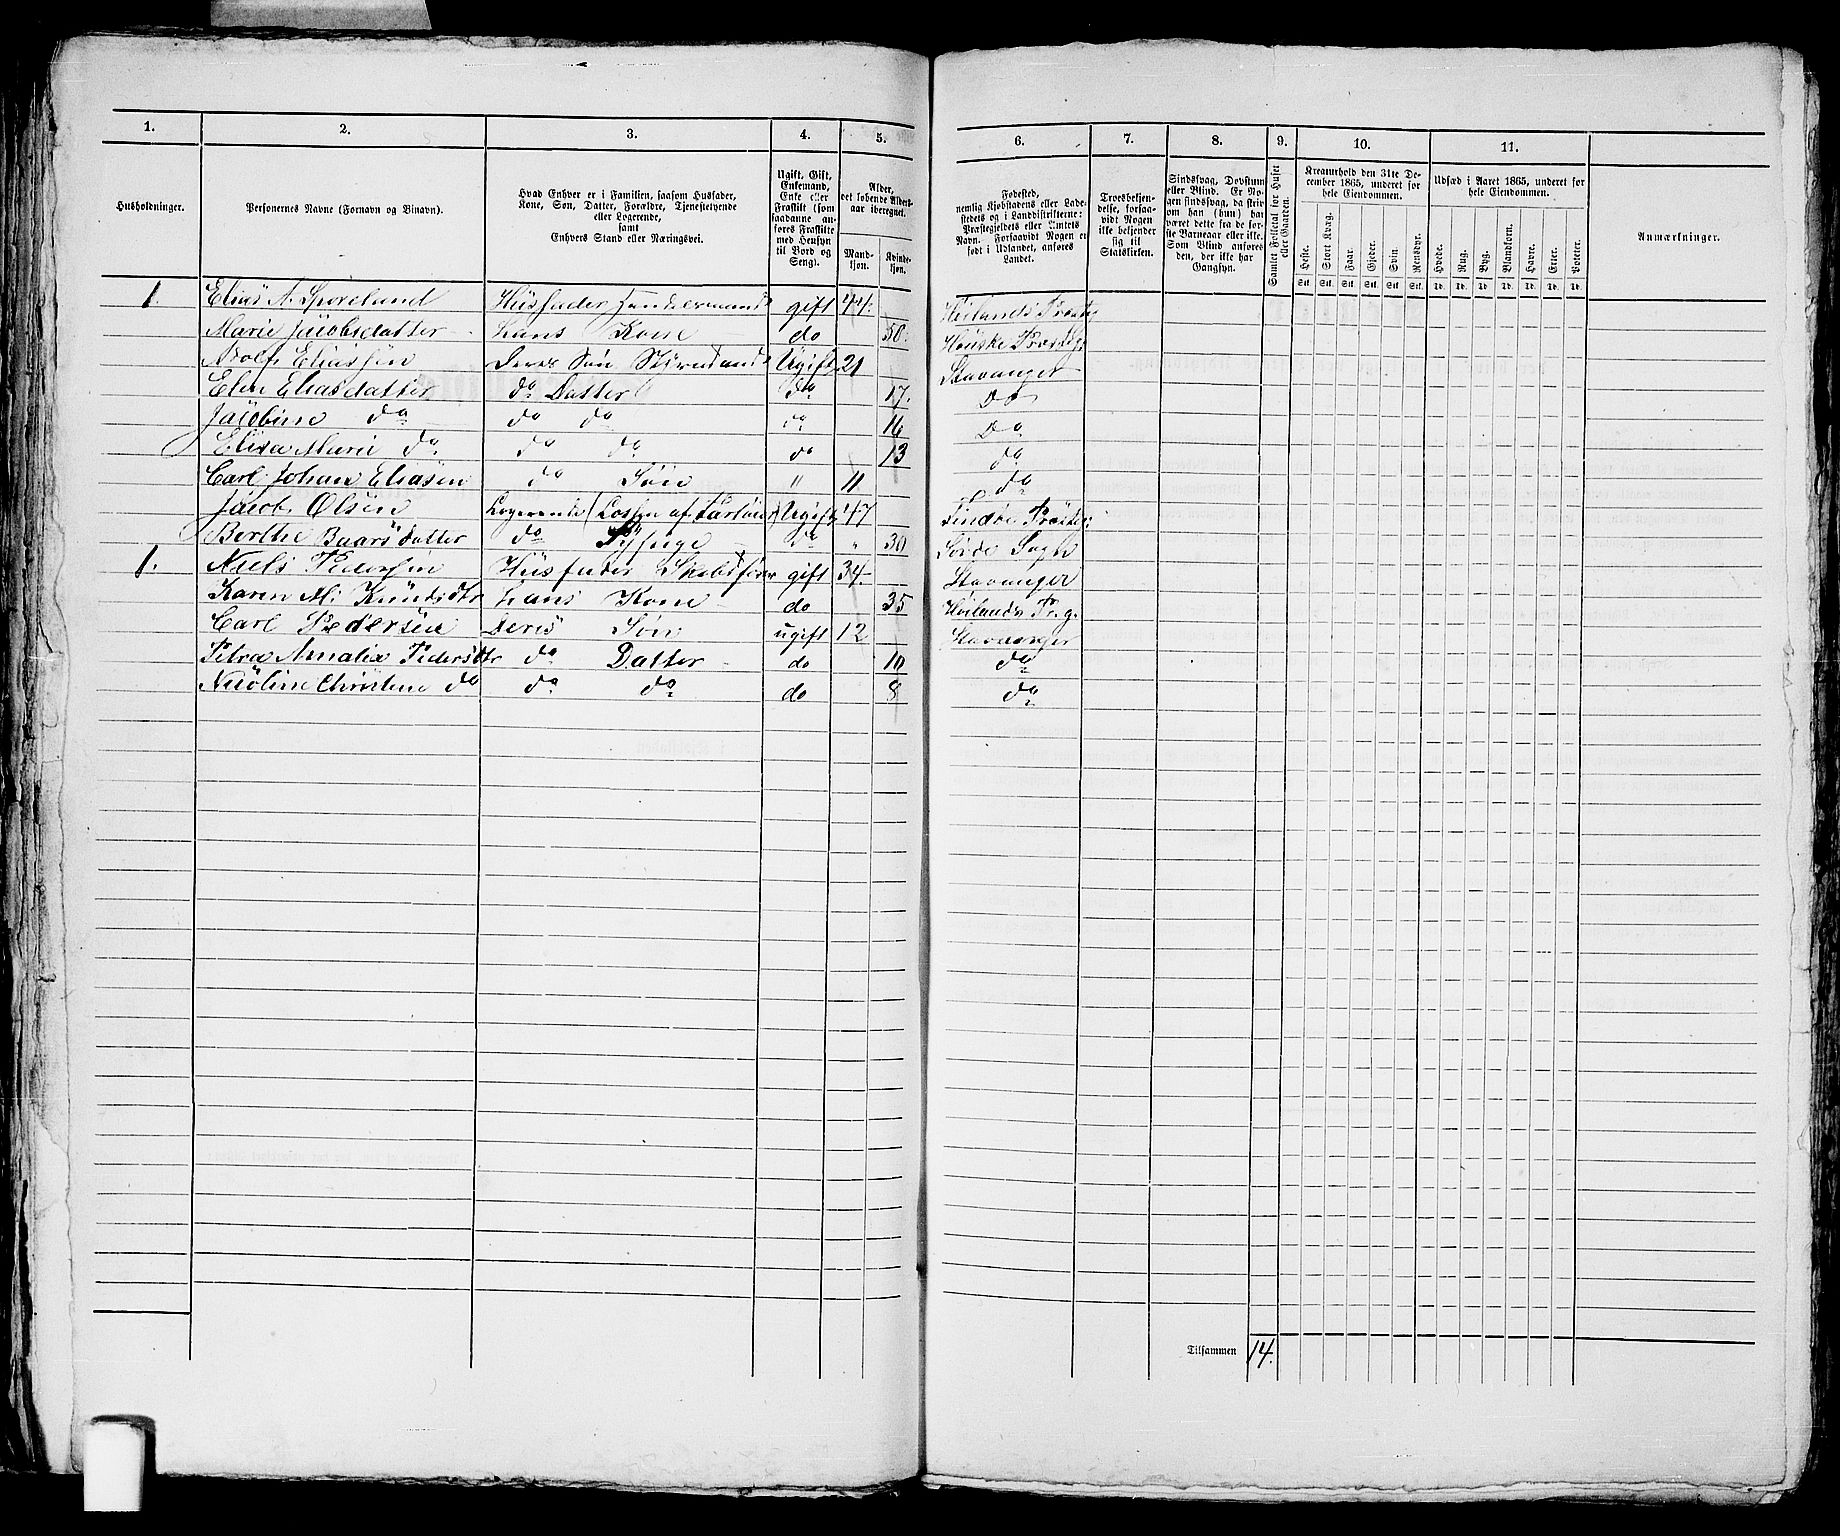 1. 2. 3. 4. 5. 6. 7. 8. 9. 10. 11.
Husholdninger.
Personernes Navne (Fornavn og Binavn).
Hvad Enhver er i Familien, saasom Husfader, Kone, Søn, Datter, Forældre, Tjenestetyende eller Logerende, samt Enhvers Stand eller Næringsvei.
Ugift, Gift, Enkemand, Enke eller Fraskilt (som saadanne anføres Fraskilte med Hensyn til Bord og Seng).
Alder, det løbende Aldersaar iberegnet.
Mandkjøn. Kvindekjøn.
Fødested, nemlig Kjøbstadens eller Ladestedets og i Landdistrikterne: Præstegjeldets eller Annexets Navn. Forsaavidt Nogen er født i Udlandet, anføres Landet.
Troesbekjendelse, forsaavidt Nogen ikke bekjender sig til Statskirken.
Sindssvag, Døvstum eller Blind. Er Nogen sindssvag, da skrives om han (hun) har været dette fra de første Barneaar eller ikke. Som Blind anføres den, der ikke har Gangsyn.
Samlet Folketal for Huset eller Gaarden.
Kreaturhold den 31te December 1865, underet for hele Eiendommen.
Heste. Stort Kvæg. Faar. Gjeder. Svin. Rensdyr.
Udsæd i Aaret 1865, underet for hele Eiendommen.
Hvede. Rug. Byg. Blandkorn. Havre. Erter. Poteter.
Anmærkninger.
1. Elias A. Sporeland Husfader gift 44.
Marie Jacobsdatter hans Kone do 50.
Adolf Eliassen Deres Søn Ugift 21 Stavanger
Elen Eliasdatter do Datter do 17. Do
Jacobine do do do do 16 Do
Elisa Marie do do do do 13 do
Carl Johan Eliasen do Søn " 11 do
Jacob Olsen Logerende Ugift 47
Berthe Baarsdatter do Sypige do " 30
1. Niels Pedersen Husfader gift 34. Stavanger
Karen M. Knudsdtr hans Kone do 35 Høilands Pr.g.
Carl Pedersen Deres Søn ugift 12 Stavanger
Petra Amalia Pedersdtr do Datter do 10 do
Nicoline Christine do do do do 8 do
Tilsammen 14.